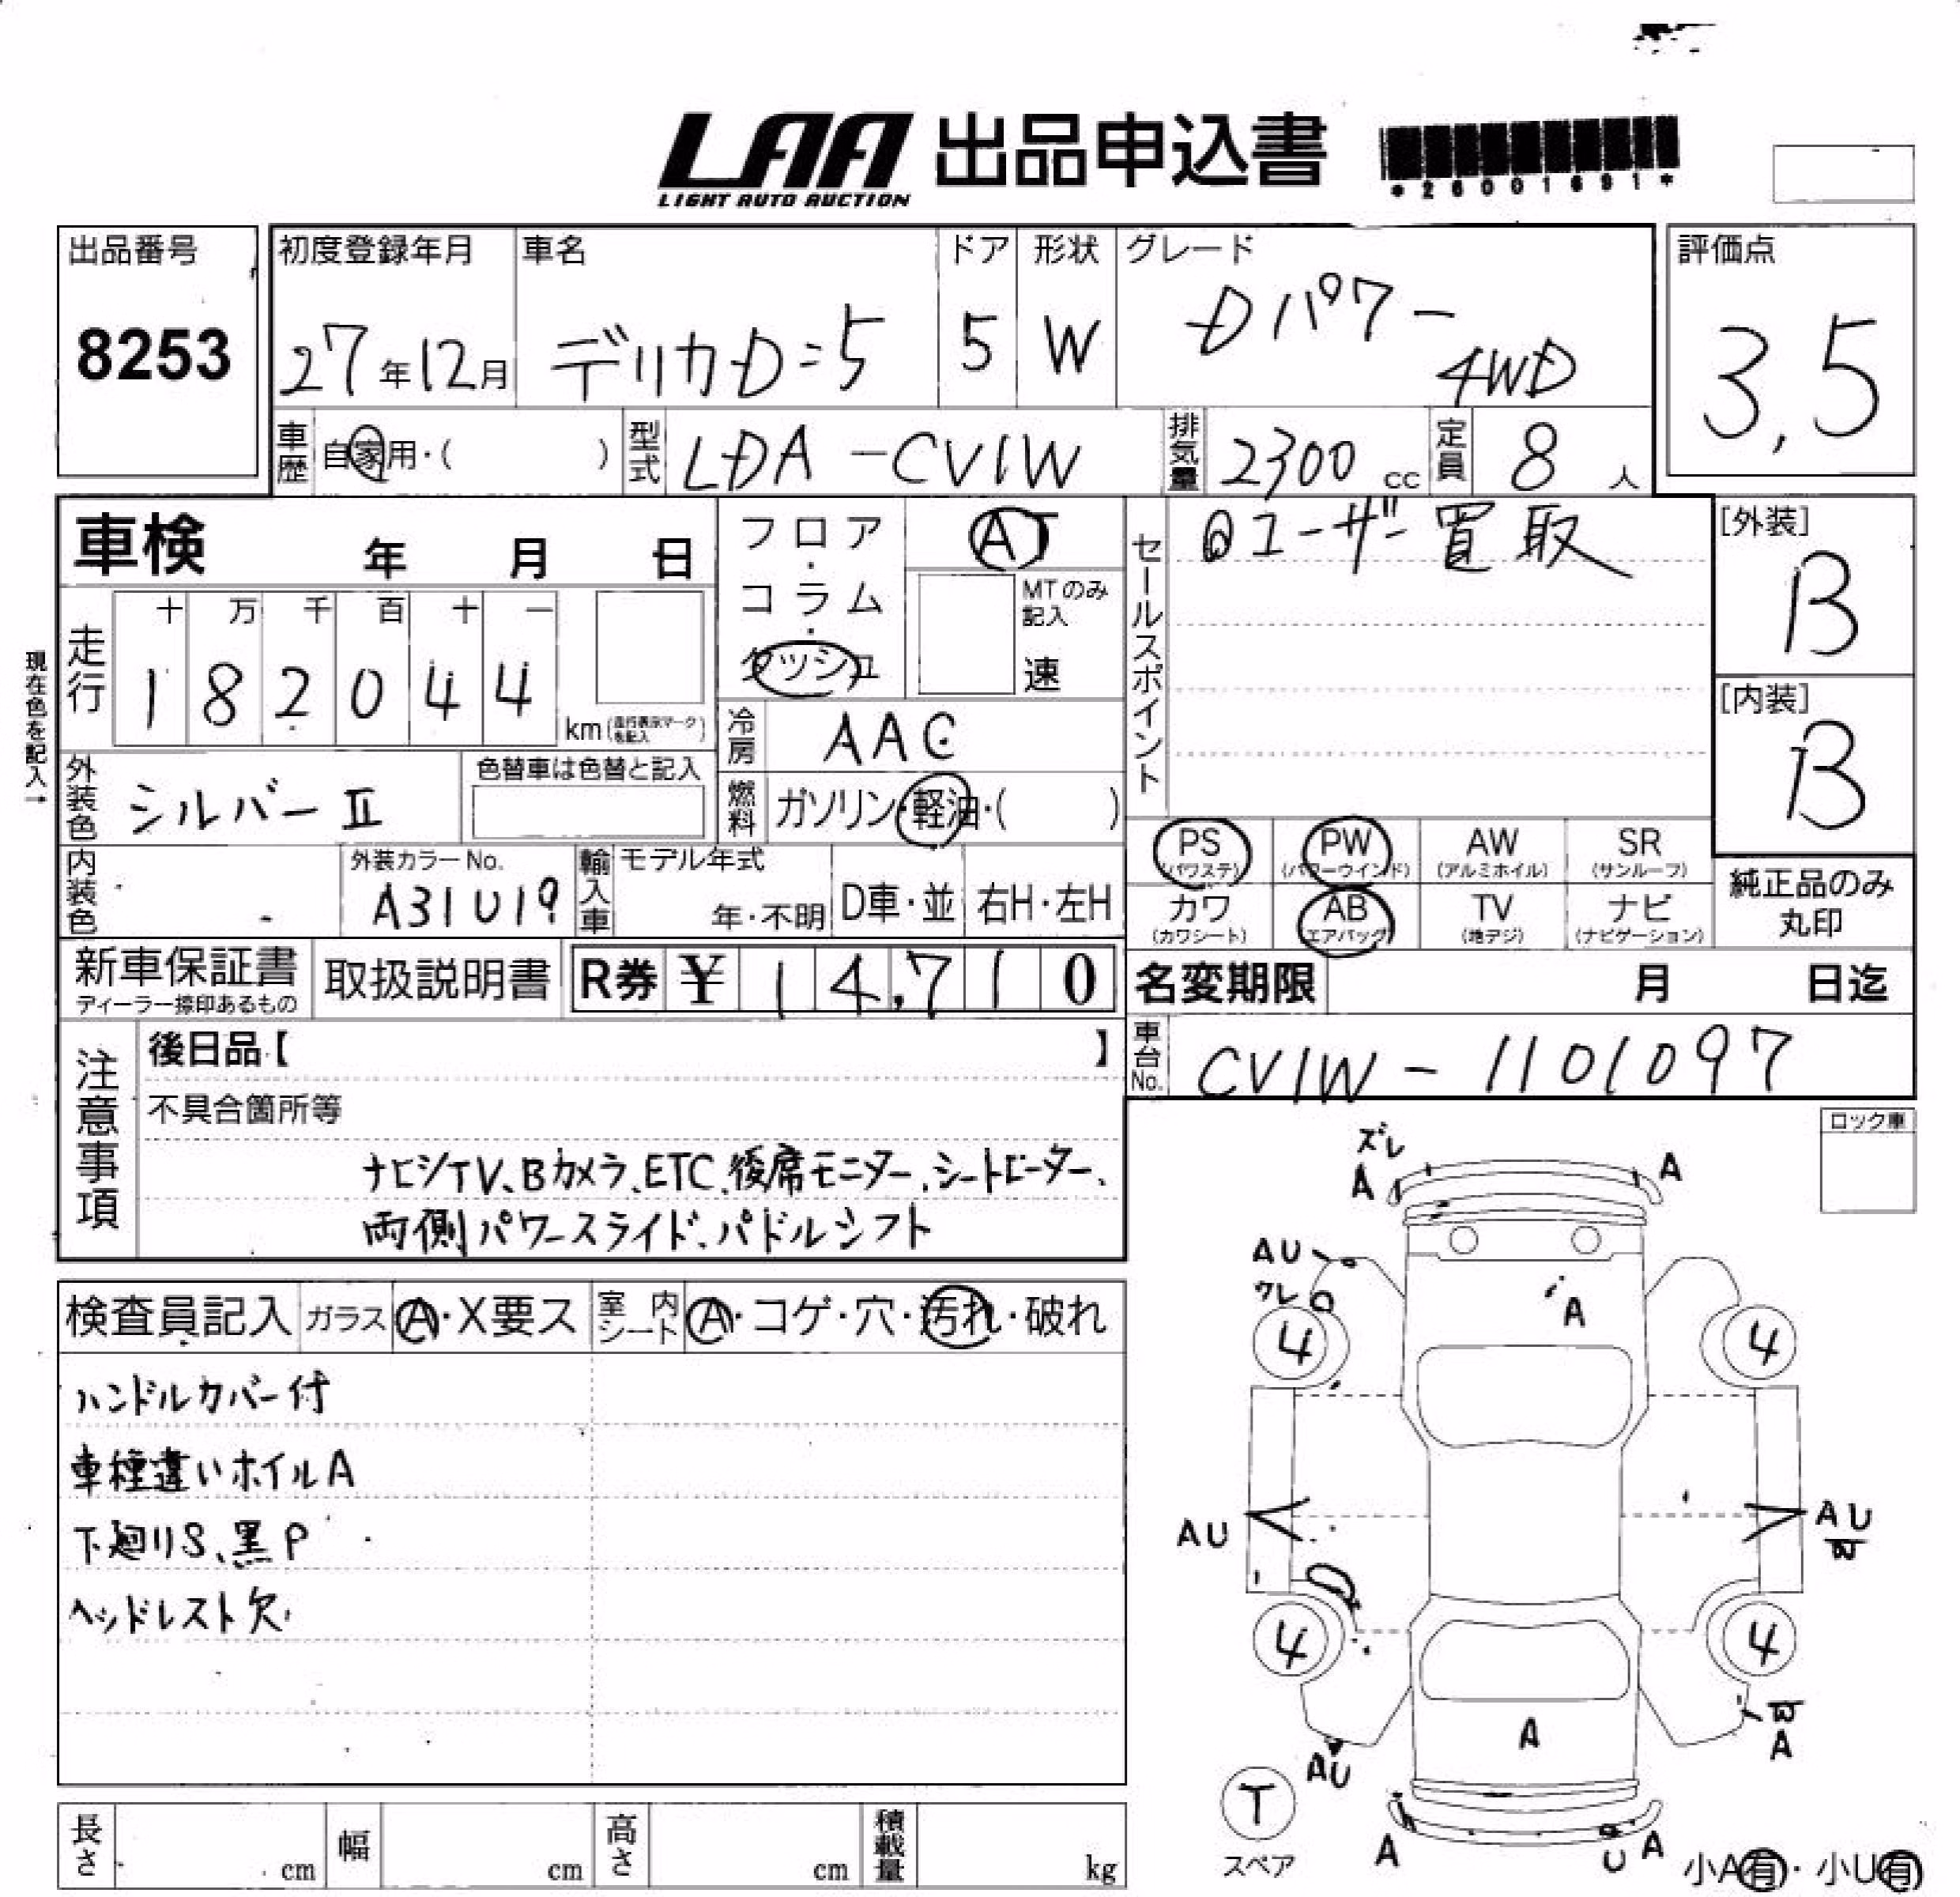 LAA 出品申込書
LIGHT AUTO AUCTION
*26001691*
出品番号
8253
初度登録年月
27年12月
車名
デリカD:5
ドア
5
形状
W
グレード
Dパワー
4WD
評価点
3,5
車歴
自家用・( )
型式
LDA-CV1W
排気量
2300 cc
定員
8 人
車検 年 月 日
フロア・コラム・ダッシュ
AT
MTのみ記入
速
セールスポイント
◎ユーザー買取
[外装]
B
[内装]
B
現在色を記入→
走行
十 万 千 百 十 一
1 8 2 0 4 4
km(走行表示マークを記入)
冷房
AAC
外装色
シルバーⅡ
色替車は色替と記入
燃料
ガソリン・軽油・( )
内装色
外装カラーNo.
A31U19
輸入車
モデル年式
年・不明
D車・並
右H・左H
PS (パワステ)
PW (パワーウインド)
AW (アルミホイル)
SR (サンルーフ)
カワ (カワシート)
AB (エアバッグ)
TV (地デジ)
ナビ (ナビゲーション)
純正品のみ
丸印
新車保証書
ディーラー捺印あるもの
取扱説明書
R券 ¥ 14,710
名変期限 月 日迄
車台No.
CV1W-1101097
注意事項
後日品【 】
不具合箇所等
ナビTV、Bカメラ、ETC、後席モニター、シートヒーター、
両側パワースライド、パドルシフト
ロック車
検査員記入
ガラス A・X要ス
室内シート A・コゲ・穴・汚れ・破れ
ハンドルカバー付
車種違いホイルA
下廻りS、黒P
ヘッドレスト欠
ズレ
A
A
AU
ワレ
A
4
4
AU
AU
4
4
A
A
AU
T
スペア
A
U
A
小A有・小U有
長さ cm
幅 cm
高さ cm
積載量 kg